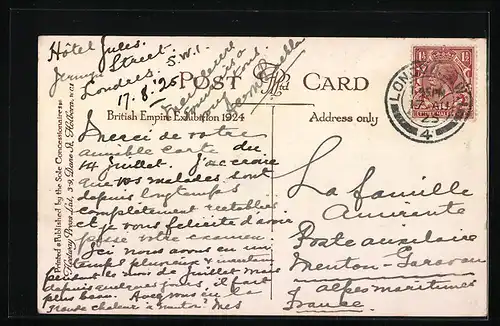 Hôtel Jules.
Jermyn Street
Londres. S.W.1
17.8.25
POST CARD
British Empire Exhibition 1924
Address only
Printed & Published by the Sole Concessionaires
Fleetway Press Ltd., 3-9, Dane St. Holborn, W.C.1
LONDON
4
Merci de votre
aimable carte du
14 Juillet. J'ai croire
que vos malades sont
depuis longtemps
complètement rétablis
et je vous félicite d'avoir
passé votre examen.
Ici nous avons eu un
temps pluvieux &
pendant le mois de Juillet mais
depuis quelques jours, il fait
plus beau. Avez vous eu la
grande chaleur à Menton? Mes
La famille
Amirante
Poste auxiliaire
Menton-Garavan
Alpes maritimes
France.